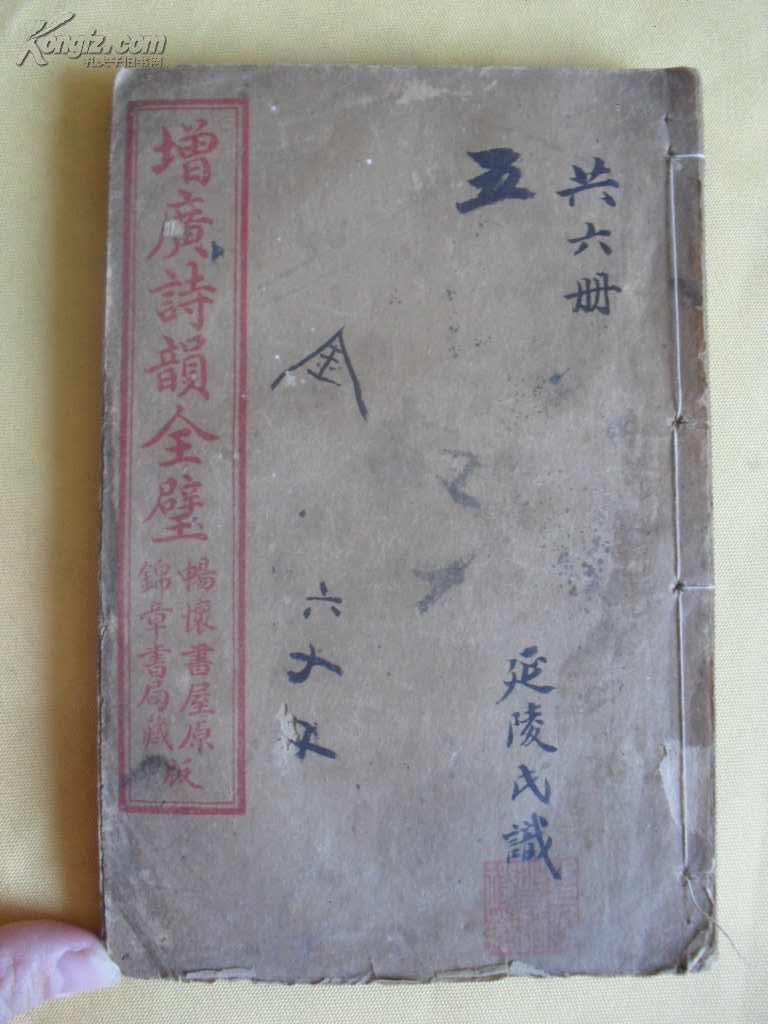 Kongfz.com
孔夫子旧书网
共六册
五
延陵氏識
金
六
增廣詩韻全璧
暢懷書屋原版
錦章書局藏